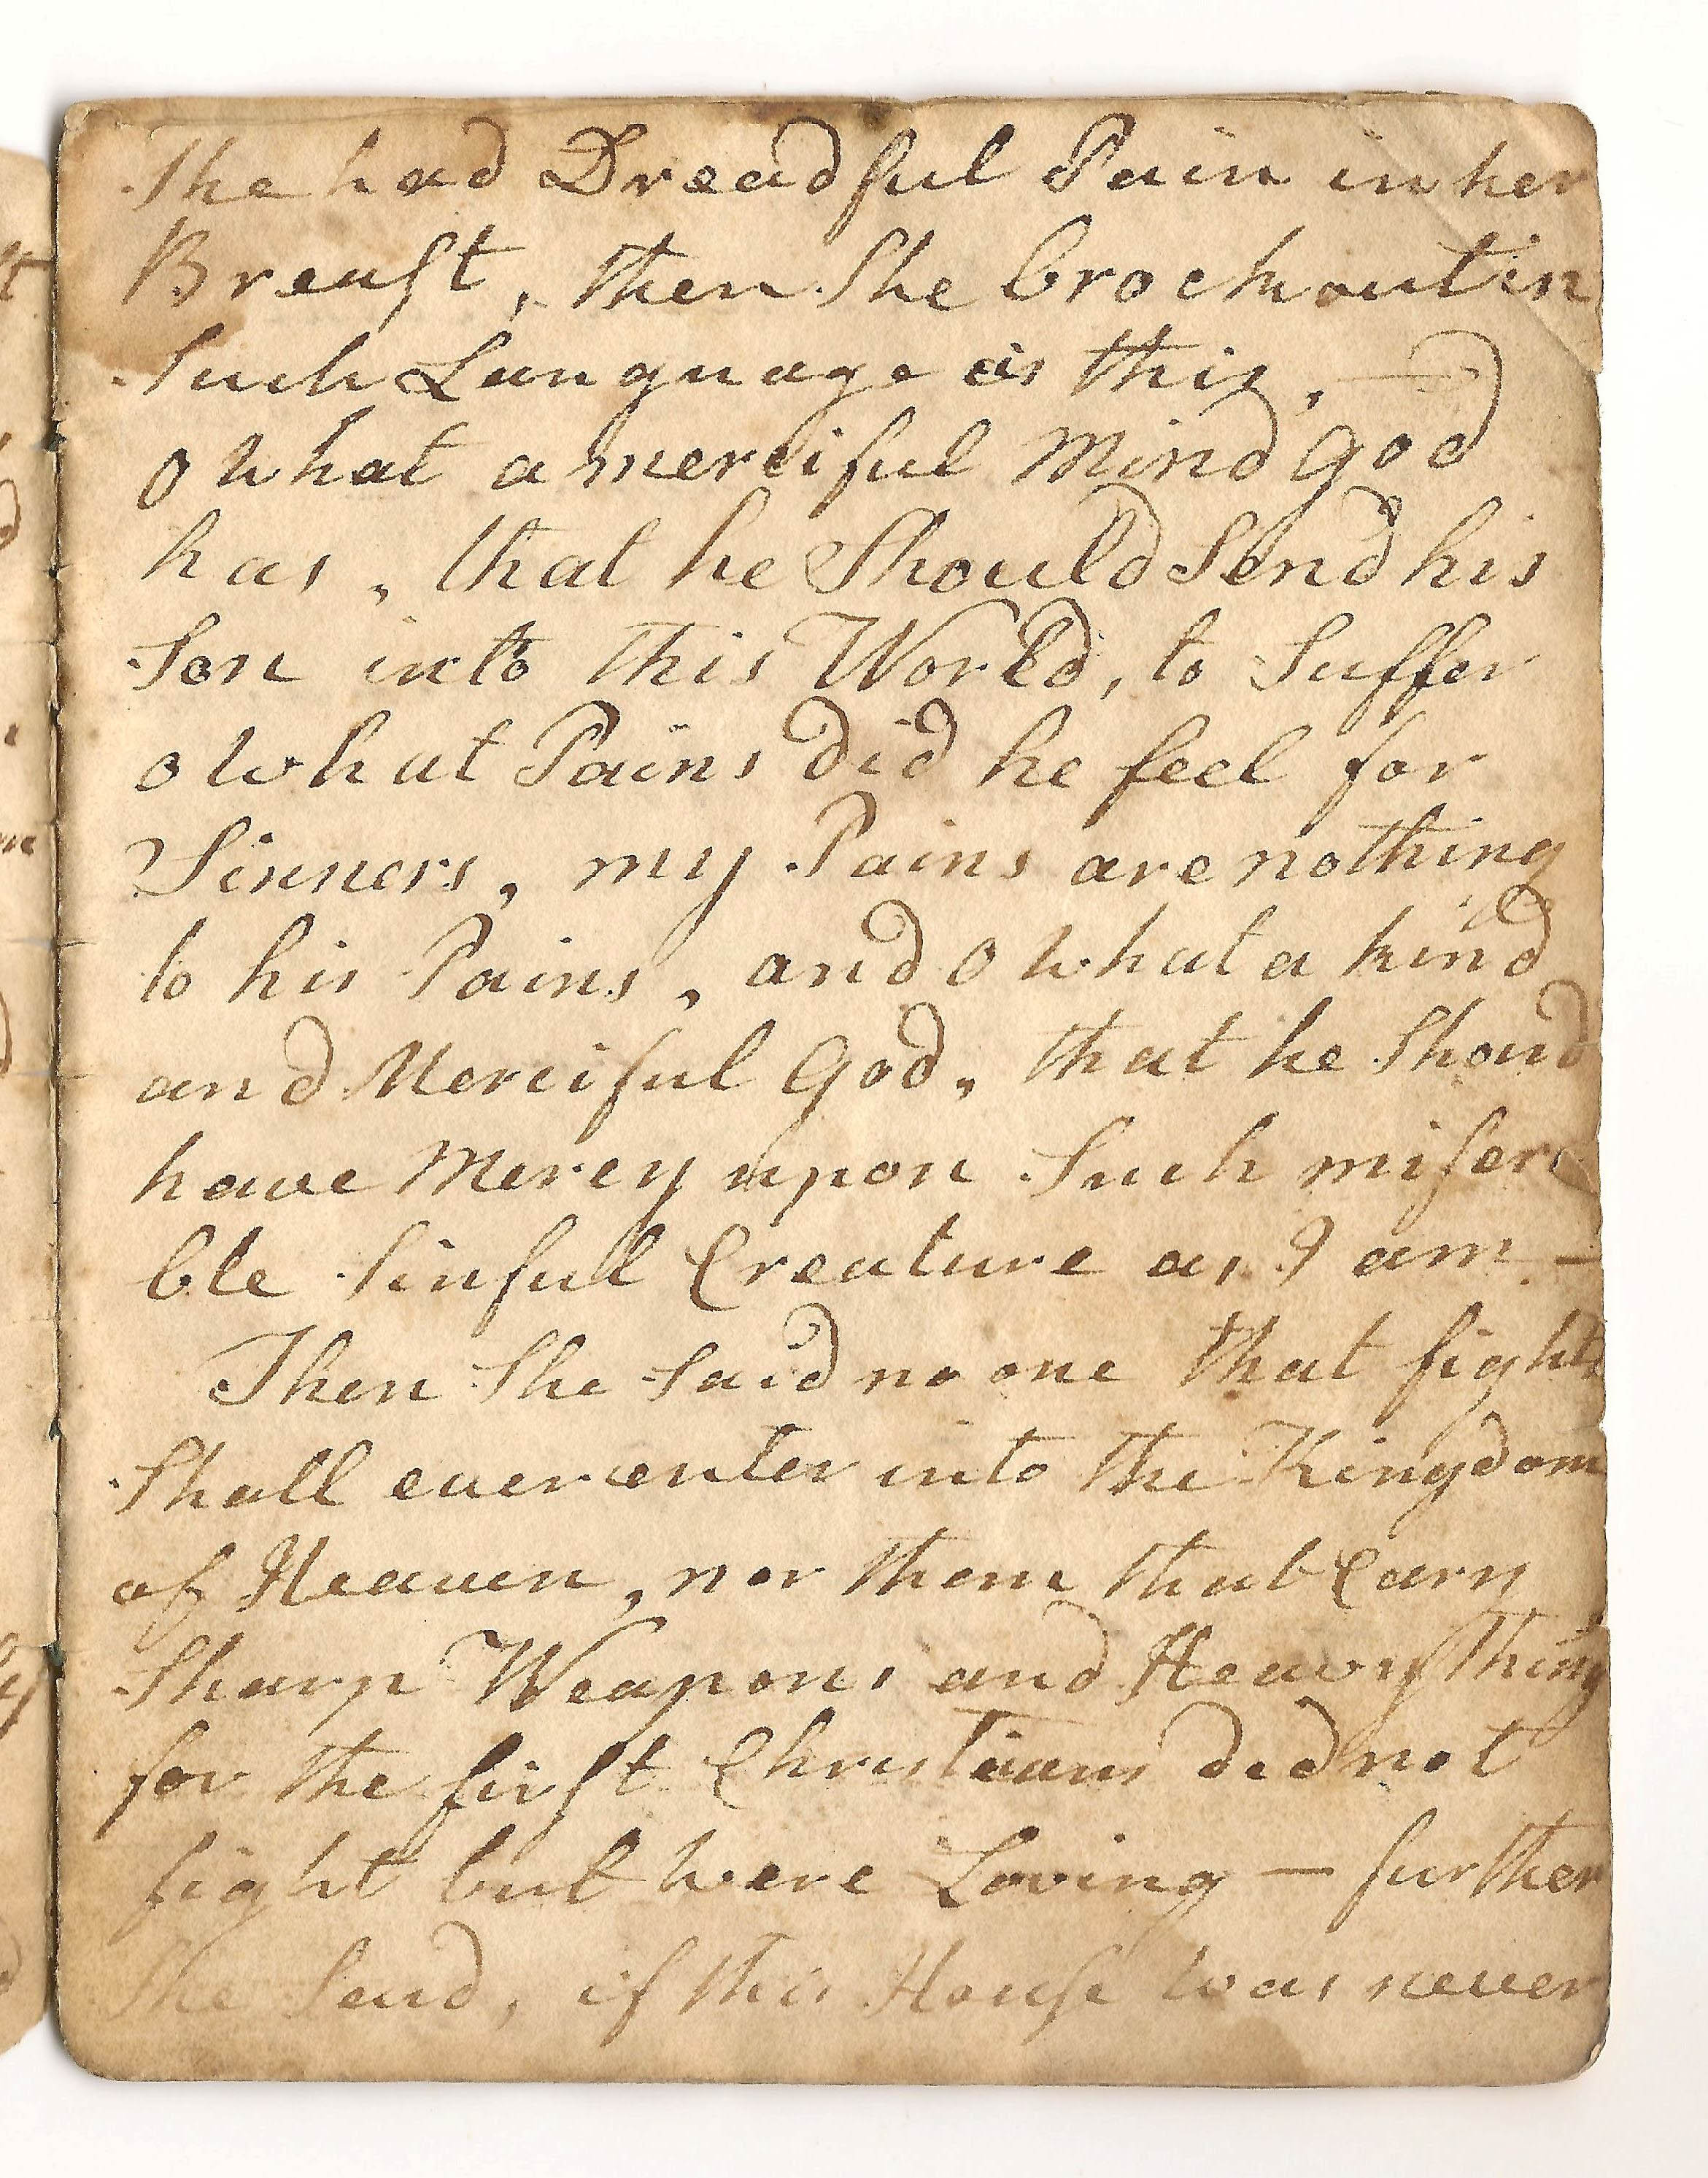 She had Dreadful Pain in her
Breast, then She brock out in
Such Language as this, —
o what a merciful Mind God
has, that he Should Send his
Son into this World, to Suffer
o what Pains did he feel for
Sinners, my Pains are nothing
to his Pains, and o what a kind
and Merciful God, that he Shoud
have Mercy upon Such misera
ble Sinful Creature as I am —
Then She Said no one that fights
Shall ever enter into the Kingdom
of Heaven, nor them that Cary
Sharp Weapons and Heavy Thing
for the first Christians did not
fight but were Loving — further
She Said, if this House was never